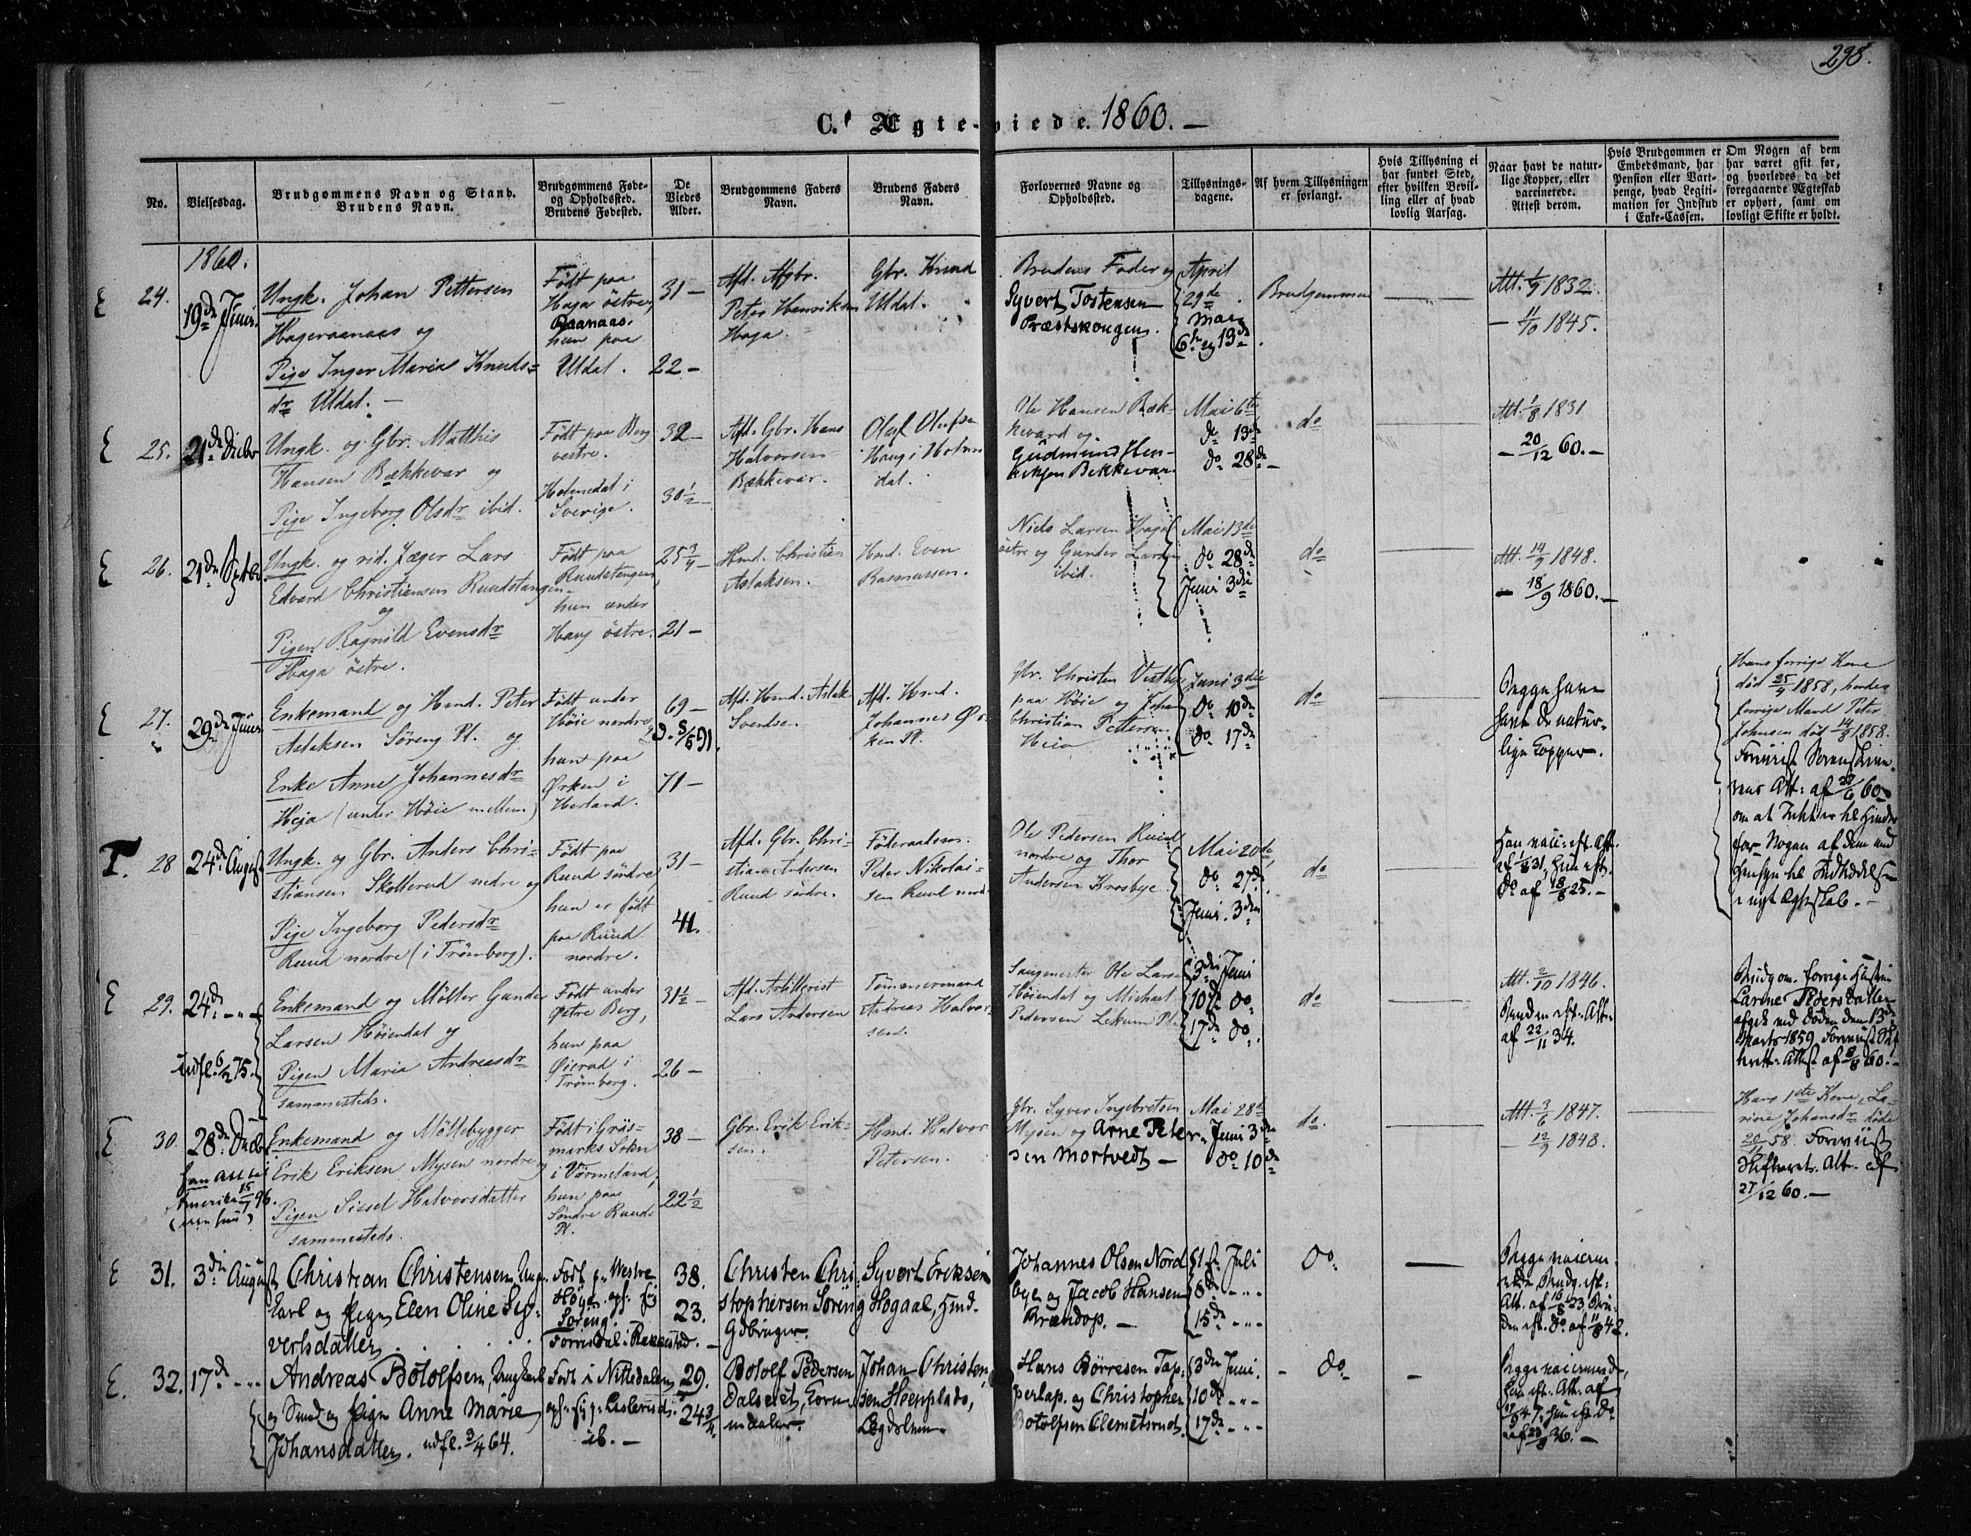 298.
C. Ægte-viede. 1860. —
No.
Vielsesdag.
Brudgommens Navn og Stand.
Brudens Navn.
Brudgommens Føde-
og Opholdssted.
Brudens Fødested.
De
Viedes
Alder.
Brudgommens Faders
Navn.
Brudens Faders
Navn.
Forlovernes Navne og
Opholdssted.
Tillysnings-
dagene.
Af hvem Tillysningen
er forlangt.
Hvis Tillysning ei
har fundet Sted,
efter hvilken Bevil-
ling eller af hvad
lovlig Aarsag.
Naar havt de natur-
lige Kopper, eller
vaccinerede.
Attest derom.
Hvis Brudgommen er
Embedsmand, har
Pension eller Vart-
penge, hvad Legiti-
mation for Indskud
i Enke-Cassen.
Om Nogen af dem
har været gift før,
og hvorledes da det
foregaaende Ægteskab
er ophørt, samt om
lovligt Skifte er holdt.
1860.
E 24.
19de Juni
Ungk. Johan Pettersen
Hageraanaas og
Pige Inger Maria Knuds=
dr Uldal. —
Født paa
Haga östre,
Raanaas.
hun paa
Uldal.
31 —
22 —
Afd.
Peter Henriksen
Haga.
Gbr. Knud
Uldal.
Brudens Fader og
Syvert Tostensen
Præstskougen.
April
29de
Mai
6te og 13de
Brudgommen
Att. 1/9 1832.
— 11/10 1845.
E 25.
21de Decbr
Ungk. og Gbr. Matthis
Hansen Bækkevar og
Pige Ingeborg Olsdr ibid.
Født paa Berg
vestre.
Holmedal i
Sverige.
32 —
30 1/2 —
Afd. Gbr. Hans
Halvorsen
Bækkevar.
Oluf Olufsen
Haug i Holme
dal.
Ole Hansen Bæk-
kevard og
Gudmund Hen-
riksen Bekkevar.
Mai 6te
do 13de
do 28de —
do
Att. 1/8 1831
— 20/12 60. —
E 26.
21de Septbr
Ungk. og rid. Jæger Lars
Edvard Christiansen Ruudstangen
og
Pigen Ragnild Evensdr
Haga östre.
Født paa
Ruudstangen,
hun under
Haug östre.
25 3/4 —
21 —
Hmd. Christian
Aslaksen.
Hmd. Even
Rasmussen.
Niels Larsen Haga
östre og Gunder Larsen
ibid.
Mai 13de
do 28de
Juni 3die
do
Att. 14/9 1848.
— 18/9 1860. —
E 27.
29de Juni
Enkemand og Hmd. Peter
Aslaksen Søreng Pl. og
Enke Anne Johannesdr
Heja (under Höie mellem)
Født under
Höie nordre,
hun paa
Ørken i
Herland.
69 —
71 —
Afd. Hmd. Aslak
Svendsen.
Afd. Hmd.
Johannes Ør-
ken Pl.
Gbr. Christen Vestby
paa Höie og Johan
Christian Pettersen
Heia
Juni 3die
do 10de
do 17de
do
Begge have
havt de natur-
lige Kopper.
Hans forrige Kone
død 25/4 1858, hendes
forrige Mand Peter
Johnsen død 14/8 1858.
om at Intet er til Hinder
for Nogen af dem med
Hensyn til Indtrædelse
i nyt Ægteskab. —
T. 28
24de August
Ungk. og Gbr. Anders Chri-
stiansen Skotterud nedre og
Pige Ingeborg Pedersdr
Ruud nordre (i Trömborg).
Født paa
Ruud söndre,
hun er født
paa Ruud
nordre.
31 —
41.
Afd. Gbr. Chri-
stian Andersen
Ruud söndre.
Føderaadsm.
Peter Nikolai-
sen Ruud nord-
Ole Pedersen Ruud
nordre og Thor
Andersen Krosbye.
Mai 20de,
do 27de.
Juni 3die
do
Han vacc. eft. Att.
af 1/8 31, hun eft.
do af 18/8 25. —
E 29.
24de — „ —
Enkemand og Möller Gunder
Larsen Höiendal og
Pigen Maria Andreasdr
sammesteds.
Født under
Østre Berg,
hun paa
Øierud i
Trömborg.
31 1/2 —
26 —
Afd. Artillerist
Lars Andersen
Tömmermand
Andreas Halvor-
sen.
Saugmester Ole Larsen
Höiendal og Michael
Pedersen Lekum Pl.
3die Juni
10de do.
17de do.
do
Att. 2/10 1846.
Bruden eft. Att.
af 22/11 34.
Brudgom. forrige Hustru
Larine Pedersdatter
afgik ved Døden den 13de
Marts 1859
Attest af 8/8 60. —
E 30.
28de Decbr
Enkemand og Möllebygger
Erik Eriksen Mysen nordre og
Pigen Sissel Halvorsdatter
sammesteds.
Født i Gräs-
marks Sokn
i Vermeland,
hun paa
Söndre Ruuds
Pl.
38 —
22 1/2
Gbr. Erik Erik-
sen.
Hmd. Halvor
Petersen.
Gbr. Syver Ingebretsen
Mysen og Arne Peter-
sen Mortvedt —
Mai 28de
Juni 3die
do 10de
do.
Att. 3/6 1847.
— 12/9 1848.
Hans 1ste Kone, La-
rine Johansdr døde
Skifteret. Att. af
27/12 60. —
E 31.
3die August
Christian Christensen, Ung-
karl og Pigen Elen Oline Sy-
vertsdatter
Født p. Vestre
Høyen
Soreng.
38.
23.
Christen Chri-
stophersen Soreng
Gdbruger.
Syvert Eriksen
Hogaal, Hmd.
Johannes Olsen Nord
bye og Jacob Hansen
Brændop. —
1ste Juli
8de „
15de „
do.
E. 32.
17de „
Andreas Botolfsen, Ungkarl
og Smed og Pigen Anne Marie
Johansdatter. udfl. 3/4 64.
Født i Nittedalen
29.
24 3/4.
Botolf Pedersen
Johan Christen-
sen Steenplads,
Hans Børresen Tap-
perlap. og Christopher
Botolfsen Clemetsrud
3die Juni
10de „
17de „
do.